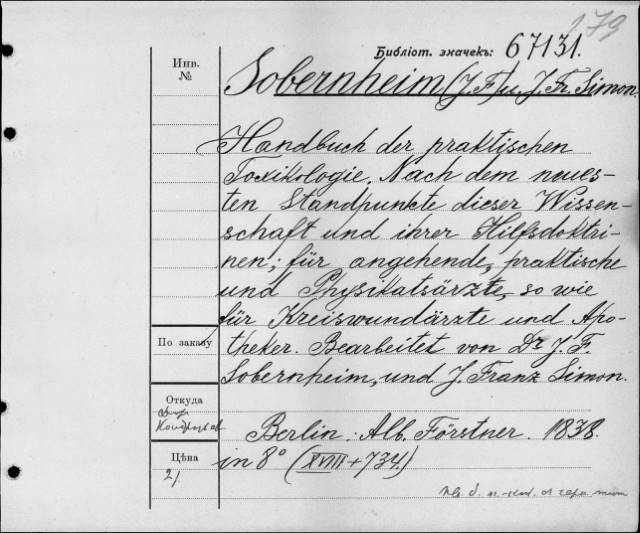 179
Библіот. значекъ: 67131.
Инв.
№
Sobernheim (J. F.) u. J. Fr. Simon.
Handbuch der praktischen
Toxikologie. Nach dem neues-
ten Standpunkte dieser Wissen-
schaft und ihrer Hilfsdoktri-
nen; für angehende, praktische
und Physikatsärzte, so wie
für Kreiswundärzte und Apo-
theker. Bearbeitet von Dr J. F.
Sobernheim, und J. Franz Simon.
По заказу
Откуда
Berlin: Alb. Förstner. 1838.
Цѣна
2/.
in 8° (XVIII + 734.)